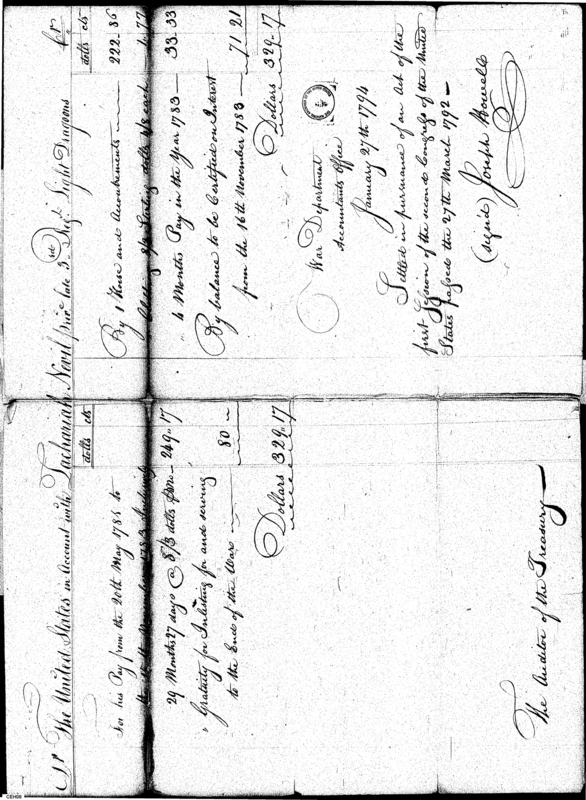 Dr. The United States in Account with Zachariah Nevil private late 3rd Regt. Light Dragoons Cr.
dolls cts
For his Pay from the 20th May 1781 to
the 16th November 1783 inclusive
29 Months 27 days @ 8/3 dolls 249.17
Gratuity for Inlisting for and serving
to the End of the War 80
Dollars 329.17
The Auditor of the Treasury
dolls cts
By 1 Horse and Accoutrements 222.86
1.77
4 Months Pay in the Year 1783 33.33
By balance to be Certified on Interest
from the 16th November 1783 71 21
Dollars 329.17
War Department
Accountants Office
January 27th 1794
Settled in pursuance of an Act of the
first Session of the second Congress of the United
States passed the 27th March 1792
(signed) Joseph Howell